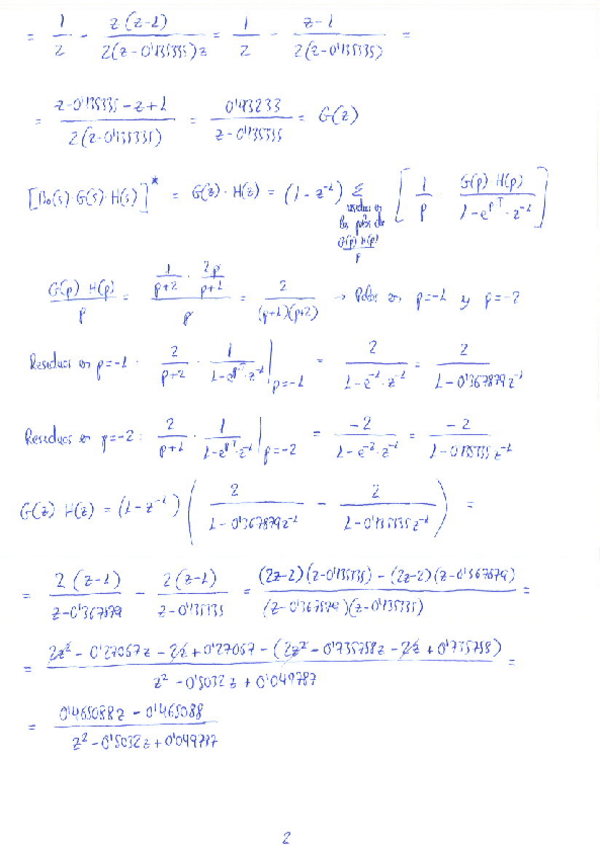 = 1/2 - z(z-1)/2(z-0'135335)z = 1/2 - z-1/2(z-0'135335) =
= z-0'135335-z+1/2(z-0'135335) = 0'43233/z-0'135335 = G(z)
[Bo(s)·G(s)·H(s)]* = G(z)·H(z) = (1-z^-1) Σ residuos en los polos de G(p)·H(p)/p [1/p · G(p)·H(p)/1-e^pT·z^-1]
G(p)·H(p)/p = 1/p+2 · 2p/p+1 / p = 2/(p+1)(p+2) → Polos en p=-1 y p=-2
Residuos en p=-1: 2/p+2 · 1/1-e^pT·z^-1 |p=-1 = 2/1-e^-1·z^-1 = 2/1-0'367879z^-1
Residuos en p=-2: 2/p+1 · 1/1-e^pT·z^-1 |p=-2 = -2/1-e^-2·z^-1 = -2/1-0'135335z^-1
G(z)·H(z) = (1-z^-1) (2/1-0'367879z^-1 - 2/1-0'135335z^-1) =
= 2(z-1)/z-0'367879 - 2(z-1)/z-0'135335 = (2z-2)(z-0'135335)-(2z-2)(z-0'367879)/(z-0'367879)(z-0'135335) =
= 2z²-0'27067z-2z+0'27067-(2z²-0'735758z-2z+0'735758)/z²-0'5032z+0'049787 =
= 0'465088z-0'465088/z²-0'5032z+0'049787
2